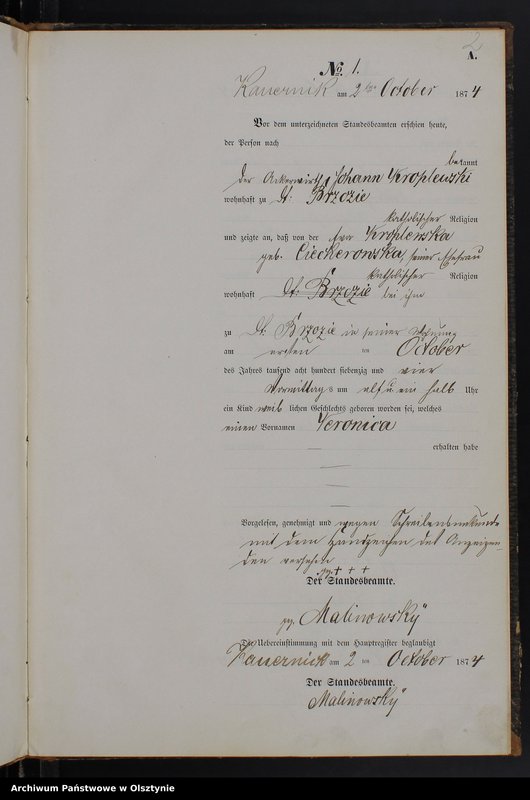 2
A.
No 1.
Kauernik am 2 ten October 1874
Vor dem unterzeichneten Standesbeamten erschien heute,
der Person nach
bekannt
der Ackerwirth Johann Kroplewski
wohnhaft zu Gr: Brzozie
katholischer Religion
und zeigte an, daß von der Eva Kroplewska
geb. Ciecherowska, seiner Ehefrau
katholischer Religion
wohnhaft Gr: Brzozie bei ihm
zu Gr: Brzozie in seiner Wohnung
am ersten ten October
des Jahres tausend acht hundert siebenzig und vier
Vormittags um elf u ein halb Uhr
ein Kind weib lichen Geschlechts geboren worden sei, welches
einen Vornamen Veronica
erhalten habe
Vorgelesen, genehmigt und wegen Schreibensunkunde
mit dem Handzeichen des Anzeigen-
den versehen
+ + +
Der Standesbeamte.
Malinowsky
Die Uebereinstimmung mit dem Hauptregister beglaubigt
Kauernick am 2 ten October 1874
Der Standesbeamte.
Malinowsky
Archiwum Państwowe w Olsztynie